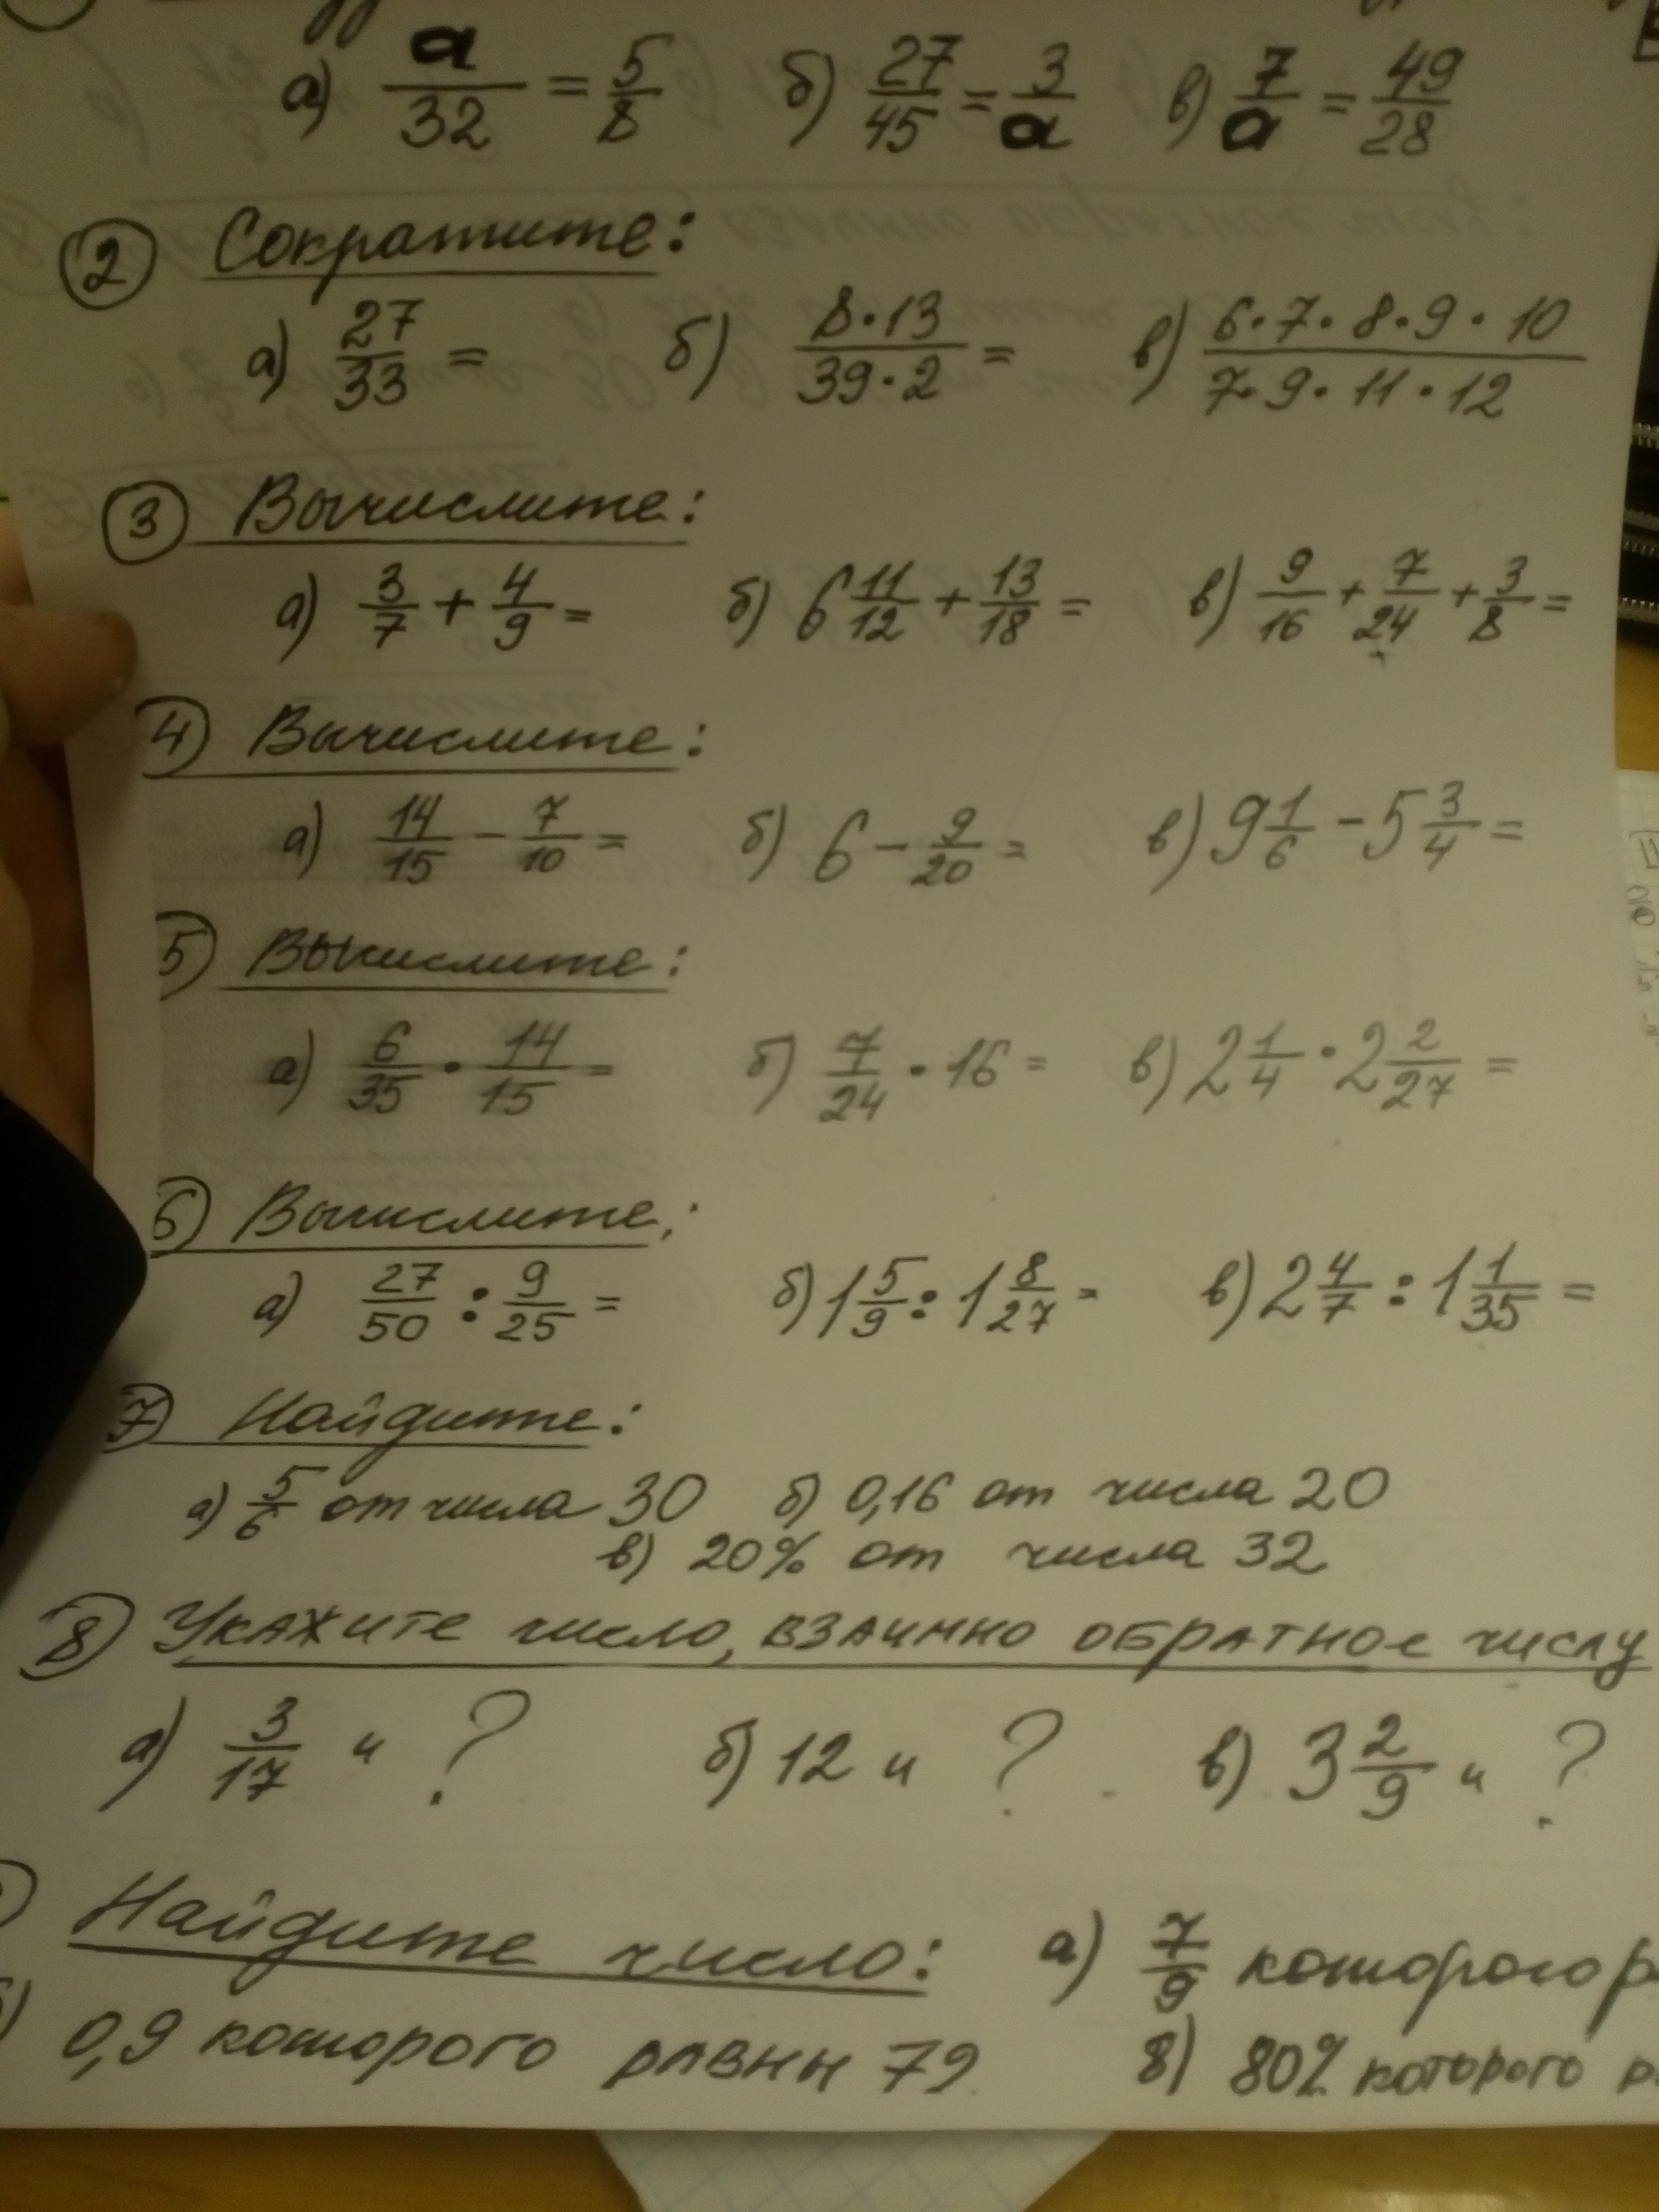 а) a/32 = 5/8 б) 27/45 = 3/a в) 7/a = 49/28
2 Сократите:
а) 27/33 = б) 8·13/39·2 = в) 6·7·8·9·10/7·9·11·12
3 Вычислите:
а) 3/7 + 4/9 = б) 6 11/12 + 13/18 = в) 9/16 + 7/24 + 3/8 =
4) Вычислите:
а) 14/15 − 7/10 = б) 6 − 9/20 = в) 9 1/6 − 5 3/4 =
5) Вычислите:
а) 6/35 · 14/15 = б) 7/24 · 16 = в) 2 1/4 · 2 2/27 =
6) Вычислите:
а) 27/50 : 9/25 = б) 1 5/9 : 1 8/27 = в) 2 4/7 : 1 1/35 =
7) Найдите:
а) 5/6 от числа 30 б) 0,16 от числа 20
в) 20% от числа 32
8) Укажите число, взаимно обратное числу
а) 3/17 и ? б) 12 и ? в) 3 2/9 и ?
Найдите число: а) 7/9 которого
0,9 которого равны 79 в) 80% которого